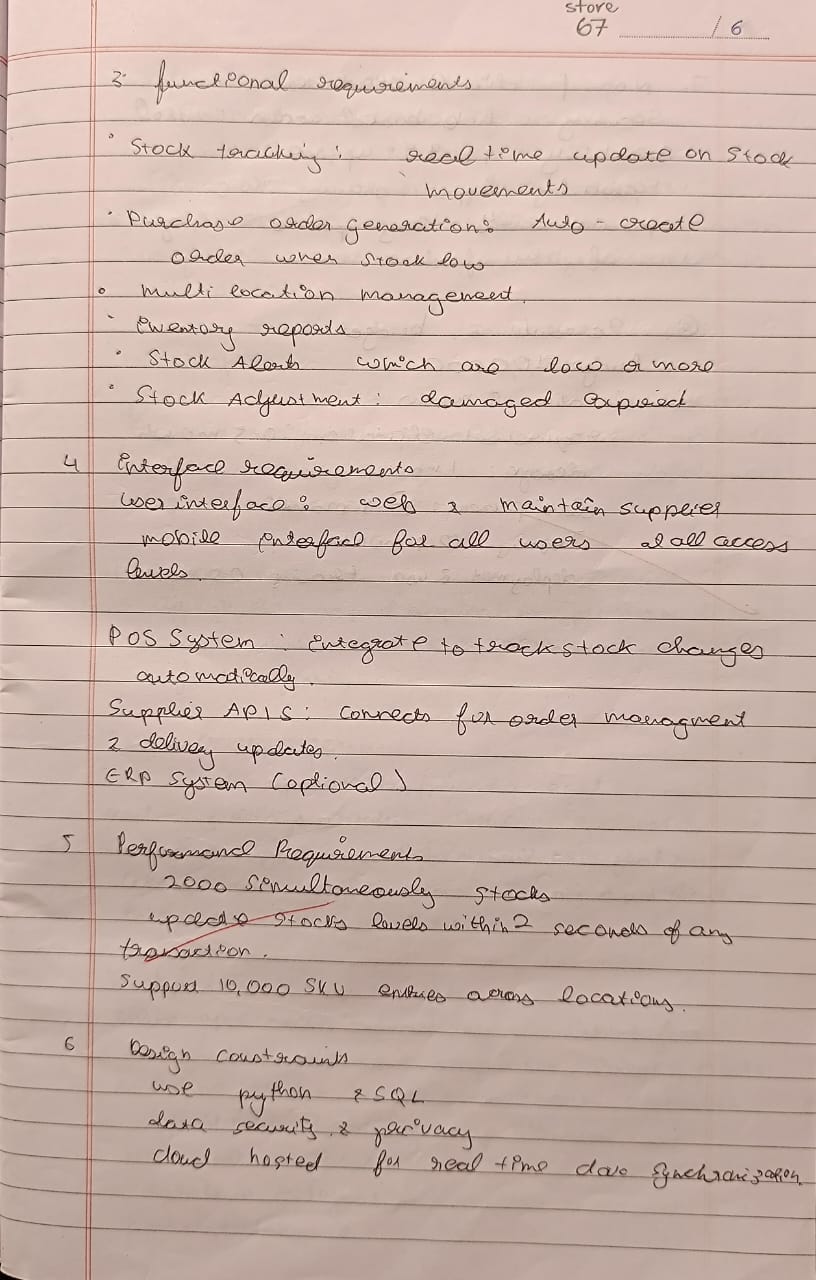 store
67 / 6
3. functional requirements
• Stock tracking : real time update on stock
movements
• Purchase order generation : Auto - create
order when stock low
• multi location management.
• Inventory reports
• Stock Alerts which are low or more
• Stock Adjustment : damaged expired
4 Interface requirements
User interface : web & maintain supplier
mobile interface for all users at all access
levels.
POS System : integrate to track stock changes
automatically.
Supplier APIS : connects for order managment
& delivery updates.
ERP System (optional)
5 Performance Requirements
2000 simultaneously stocks
update stocks levels within 2 seconds of any
transaction.
Support 10,000 SKU entries across locations.
6 Design constraints
use python & SQL
data security & privacy
cloud hosted for real time data synchronization.